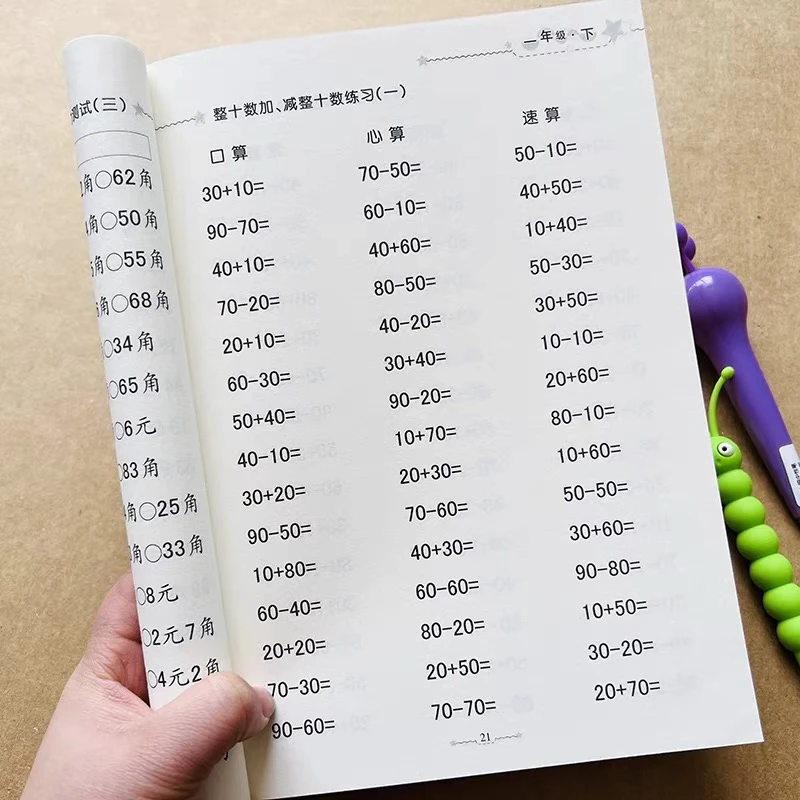 测试(三)
角○62角
角○50角
角○55角
角○68角
○34角
○65角
○6元
○83角
角○25角
角○33角
○8元
○2元7角
○4元2角
一年级·下
整十数加、减整十数练习(一)
口算 心算 速算
30+10= 70-50= 50-10=
90-70= 60-10= 40+50=
40+10= 40+60= 10+40=
70-20= 80-50= 50-30=
20+10= 40-20= 30+50=
60-30= 30+40= 10-10=
50+40= 90-20= 20+60=
40-10= 10+70= 80-10=
30+20= 20+30= 10+60=
90-50= 70-60= 50-50=
10+80= 40+30= 30+60=
60-40= 60-60= 90-80=
20+20= 80-20= 10+50=
70-30= 20+50= 30-20=
90-60= 70-70= 20+70=
21